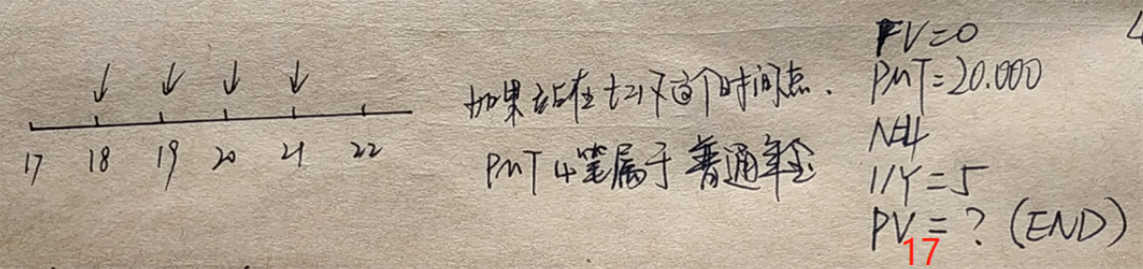 17 18 19 20 21 22
如果站在t=17这个时间点.
PMT 4笔属于普通年金
FV=0
PMT=20.000
N=4
I/Y=5
PV17=?(END)